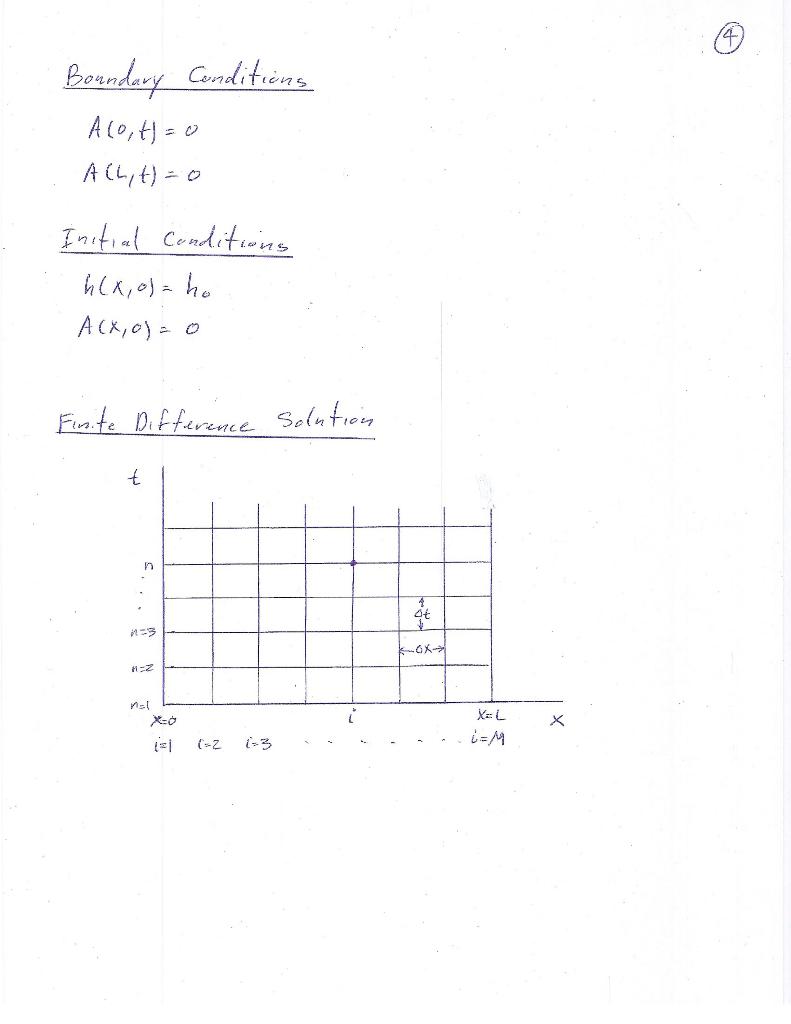 ④
Boundary Conditions
A(0,t) = 0
A(L,t) = 0
Initial Conditions
h(x,0) = h₀
A(x,0) = 0
Finite Difference Solution
t
n
.
.
.
Δt
n=3
Δx
n=2
n=1
x=0 i x=L x
i=1 i=2 i=3 . . . . . . . . i=M